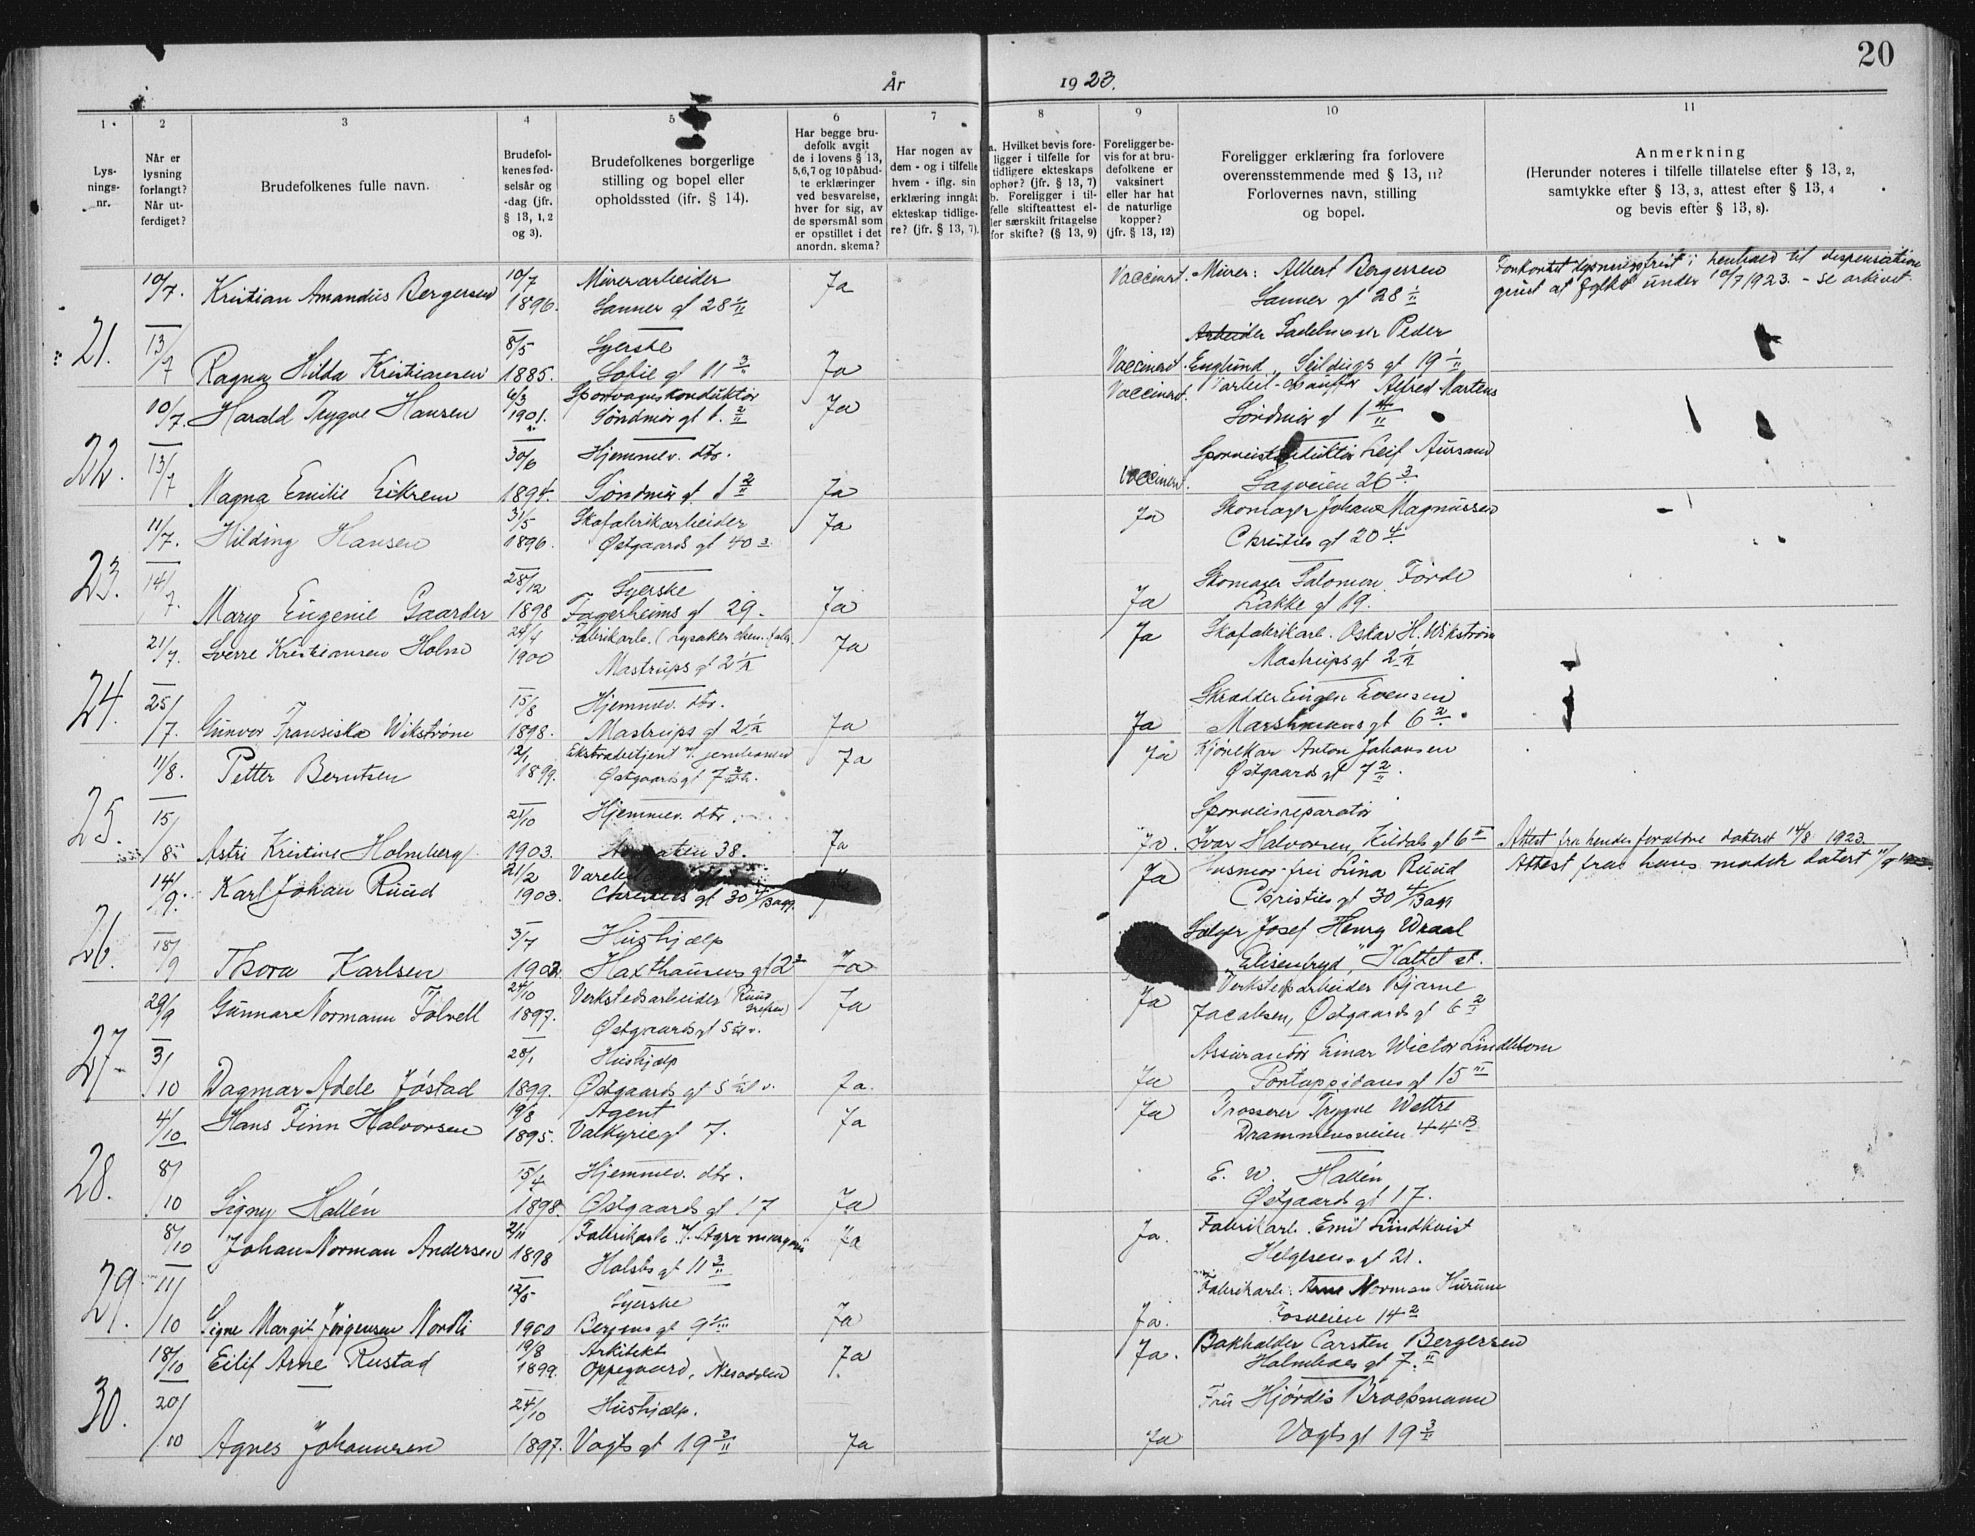 20
År 1923.
1
2
3
4
5
6
7
8
9
10
11
Lys-
nings-
nr.
Når er
lysning
forlangt?
Når ut-
ferdiget?
Brudefolkenes fulle navn.
Brudefol-
kenes fød-
selsår og
-dag (jfr.
§ 13, 1, 2
og 3).
Brudefolkenes borgerlige
stilling og bopel eller
opholdssted (jfr. § 14).
Har begge bru-
defolk avgit
de i lovens § 13,
5,6,7 og 10 påbud-
te erklæringer
ved besvarelse,
hver for sig, av
de spørsmål som
er opstillet i det
anordn. skema?
Har nogen av
dem - og i tilfelle
hvem - iflg. sin
erklæring inngåt
ekteskap tidlige-
re? (jfr. § 13, 7).
a. Hvilket bevis fore-
ligger i tilfelle for
tidligere ekteskaps
ophør? (jfr. § 13, 7)
b. Foreligger i til-
felle skifteattest el-
ler særskilt fritagelse
for skifte? (§ 13, 9)
Foreligger be-
vis for at bru-
defolkene er
vaksinert
eller har hat
de naturlige
kopper?
(jfr. § 13, 12)
Foreligger erklæring fra forlovere
overensstemmende med § 13, 11?
Forlovernes navn, stilling
og bopel.
Anmerkning
(Herunder noteres i tilfelle tillatelse efter § 13, 2,
samtykke efter § 13, 3, attest efter § 13, 4
og bevis efter § 13, 8).
21.
10/7. Kristian Amandus Bergersen 10/7 1896. Murerarbeider Ja Vaccinert. Murer: Albert Bergersen
Sanner gt 28 1/II Sanner gt 28 1/II
Forkortet lysningsfrist i henhold til dispensation
under 10/7 1923. - se arkivet.
13/7 Ragna Hilda Kristiansen 8/5 1885. Syerske Ja Vaccinert. Arbeider Peder
Sofie gt 11 3/II Englund, gt 19 1/II
22.
10/7. Harald Trygve Hansen 6/3 1901. Sporvognskonduktør Ja Vaccinert. Alfred Martens
Søndmør gt 1. 2/II Søndmør gt 1
13/7 Magna Emilie Eikrem 30/6 1894. Hjemmev. dtr. Ja Vaccinert. Leif Aursand
Søndmør gt 1 2/II Sagveien 26 3
23.
11/7. Hilding Hansen 31/5 1896. Skofabrikarbeider Ja Ja Skomager Johan Magnussen
Østgaards gt 40 Christies gt 20 4.
14/7. Mary Eugenie Gaarder 28/12 1898 Syerske Ja Ja Skomager Salomon Førde
Fagerheims gt 29. Lakke gt 19.
24.
21/7. Sverre Kristiansen Holm 24/4 1900 Fabrikarb. (Lysaker chem. fabr. Ja Ja Skofabrikarb. Oskar H. Wikstrøm
Mastrups gt 2 Mastrups gt 2
25/7. Gunvor Fransiska Wikstrøm 15/8 1898. Hjemmev. dtr. Ja Ja Skrædder Eugen Evensen
Mastrups gt 2 Marstrands gt 6 2.
25.
11/8. Petter Berntsen 12/1 1899. Ekstrabetjent v. jernbanen Ja Ja Anton Johansen
Østgaards gt 7 Østgaards gt 7 2/II.
15/8. Astri Kristine Holmberg 21/10 1903. Hjemmev. dtr. Ja Ja. Sporveisreparatør
38. Ivar Halvorsen, Kildals gt 6 II
Attest fra hendes forældre datert 14/8 1923.
26.
14/9. Karl Johan Ruud 21/2 1903. Christies gt 30 4/Bagg. Ja Husmor fru Lina Ruud
Christies gt 30 4/Bagg
Attest fra hans moder datert
18/9 Thora Karlsen 3/7 1902. Hushjælp Ja Selger Josef Henry Wraal
Haxthausens gt 2
27.
29/9 Gunnar Normann Folvell 24/10 1897. Verkstedsarbeider (Ruud Grefsen) Ja Ja Verkstedsarbeider Bjarne
Østgaards gt 5 Jacobsen, Østgaards gt 6 2
3/10 Dagmar Adele Jøstad 28/1 1899. Hushjælp Ja. Ja Assurandør Einar Wictor Lindblom
Østgaards gt 5 Pontoppidans gt 15 III
28.
4/10 Hans Finn Halvorsen 19/8 1895. Agent Ja Ja Grosserer Trygve Wettre
Valkyriegt 7. Drammensveien 44 B
8/10 Signy Hallén 15/4 1898. Hjemmev. dtr. Ja E. W. Hallén
Østgaards gt 17 Østgaards gt 17.
29.
8/10 Johan Norman Andersen 2/11 1898 Fabrikarb. v. Agra margarin Ja Ja. Fabrikarb. Emil Lundkvist
Holsts gt 11 3/II Helgesens gt 21.
11/10 Signe Margit Jørgensen Nordli 12/5 1900 Syerske Ja Ja. Fabrikarb. Arne Norman Hurum
Bergens gt 9 Fosveien 14 2
30.
18/10 Eilif Arne Rustad 19/8 1899. Arkitekt Ja. Ja. Bokholder Carsten Bergersen
Oppegaard, Nesodden Holmboes gt 7. II
20/10 Agnes Johannsen 24/10 1897. Hushjælp. Ja Ja Fru Hjørdis Brochmann
Vogts gt 19 3/II Vogts gt 19 3/II